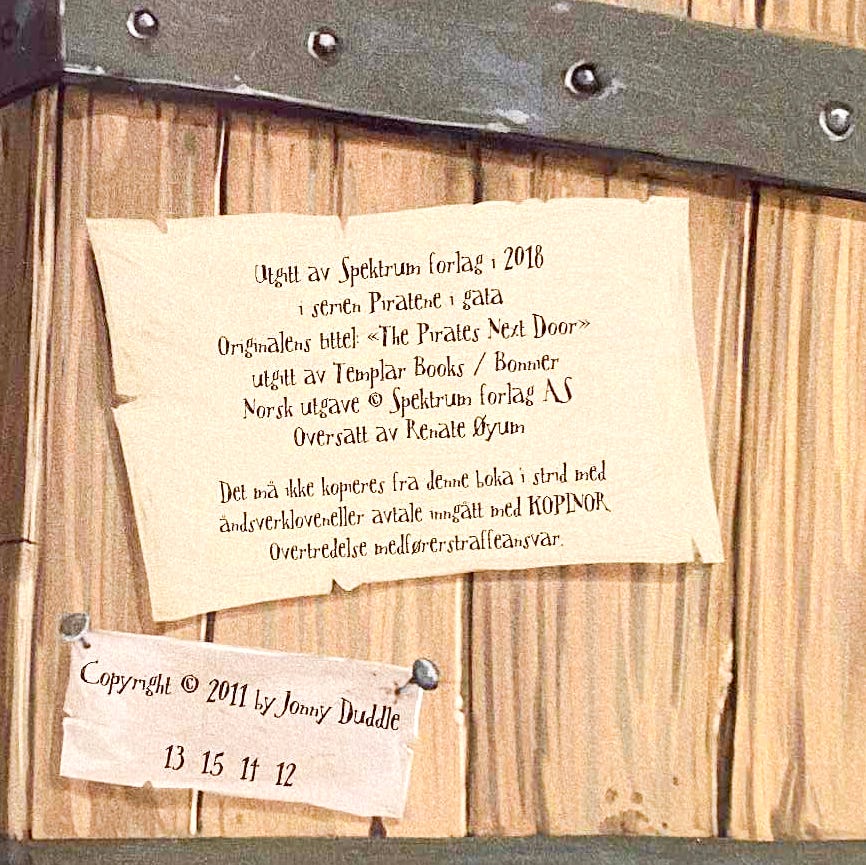 Utgitt av Spektrum forlag i 2018
i serien Piratene i gata
Originalens tittel: «The Pirates Next Door»
utgitt av Templar Books / Bonnier
Norsk utgave © Spektrum forlag AS
Oversatt av Renate Øyum
Det må ikke kopieres fra denne boka i strid med
åndsverkloveneller avtale inngått med KOPINOR
Overtredelse medførerstraffeansvar.
Copyright © 2011 by Jonny Duddle
13 15 14 12